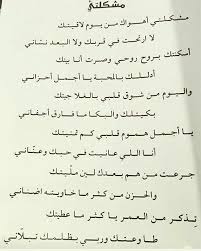 مشكلتي
مشكلتي أهواك من يوم لاقيتك
لا ارتحت في قربك ولا البعد نساني
أسكنتك بروحي وصرت أنا بيتك
أدللك بالمحبة يا أجمل أحزاني
واليوم من شوق قلبي بالغلا جيتك
بكيتلك والبكا ما فارق أجفاني
يا أجمل هموم قلبي كم تمنيتك
أنا اللي عانيت في حبك وعناني
جرعت من هم بعدك لين ملّيتك
والحزن من كثر ما خاويته اضناني
تذكر من العمر يا كثر ما عطيتك
طاوعتك وربي بظلمك تبلاني